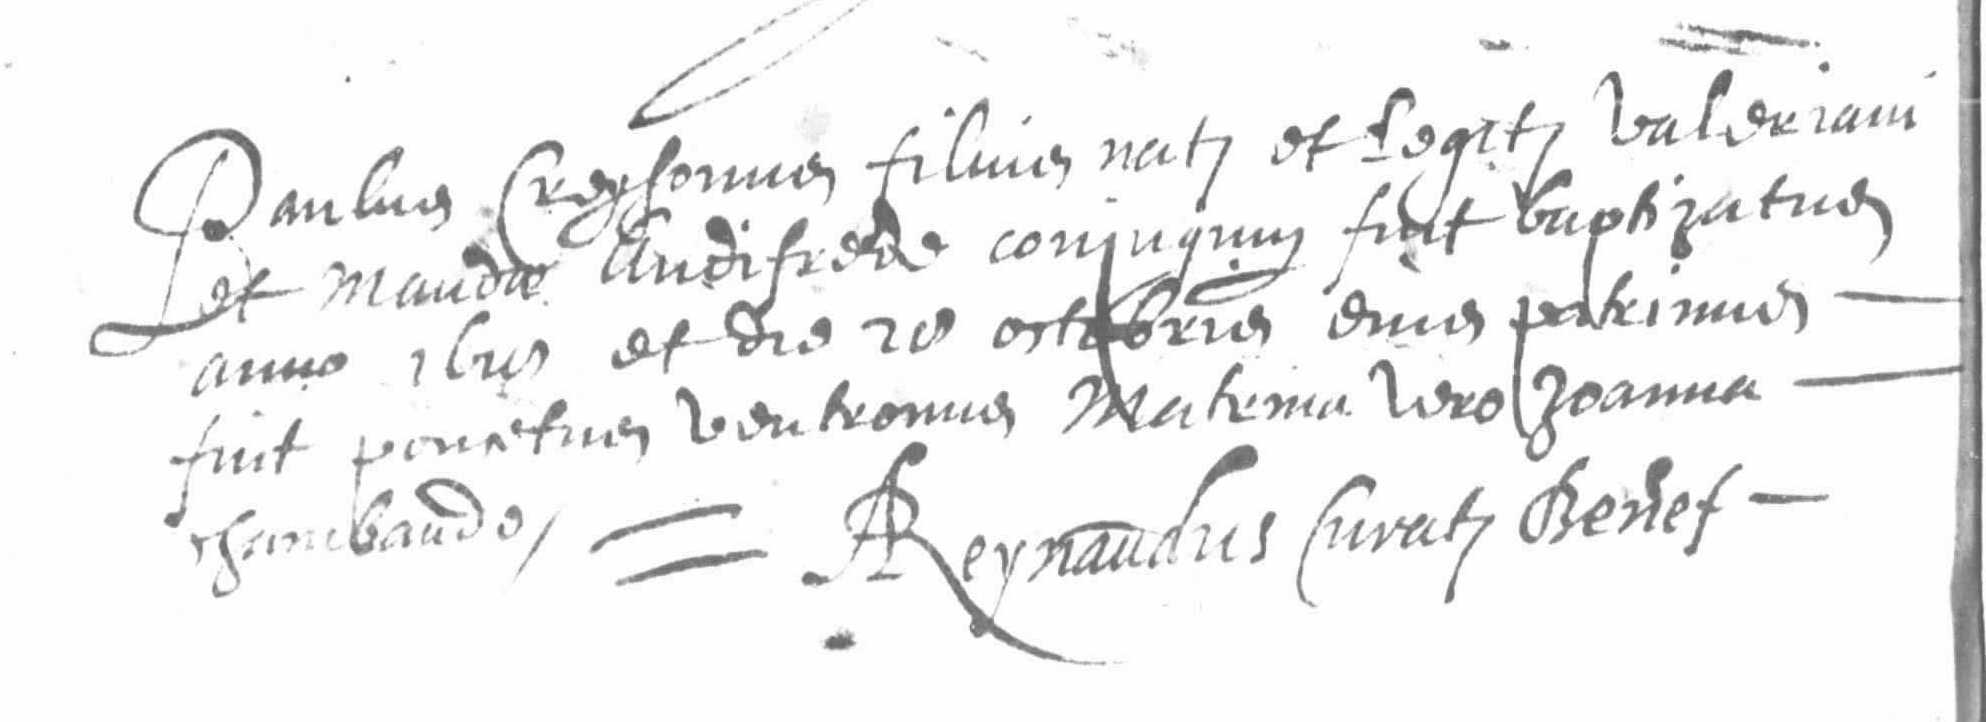 Paulus Creyssonus filius natus et legitus valeriani
et Maudæ Audifrede coniugum fuit baptizatus
anno et die 28 octobris eius patrinus
fuit poncetus ventronus Matrina vero Joanna
chambaude
A Reynaudus Curatus Benef